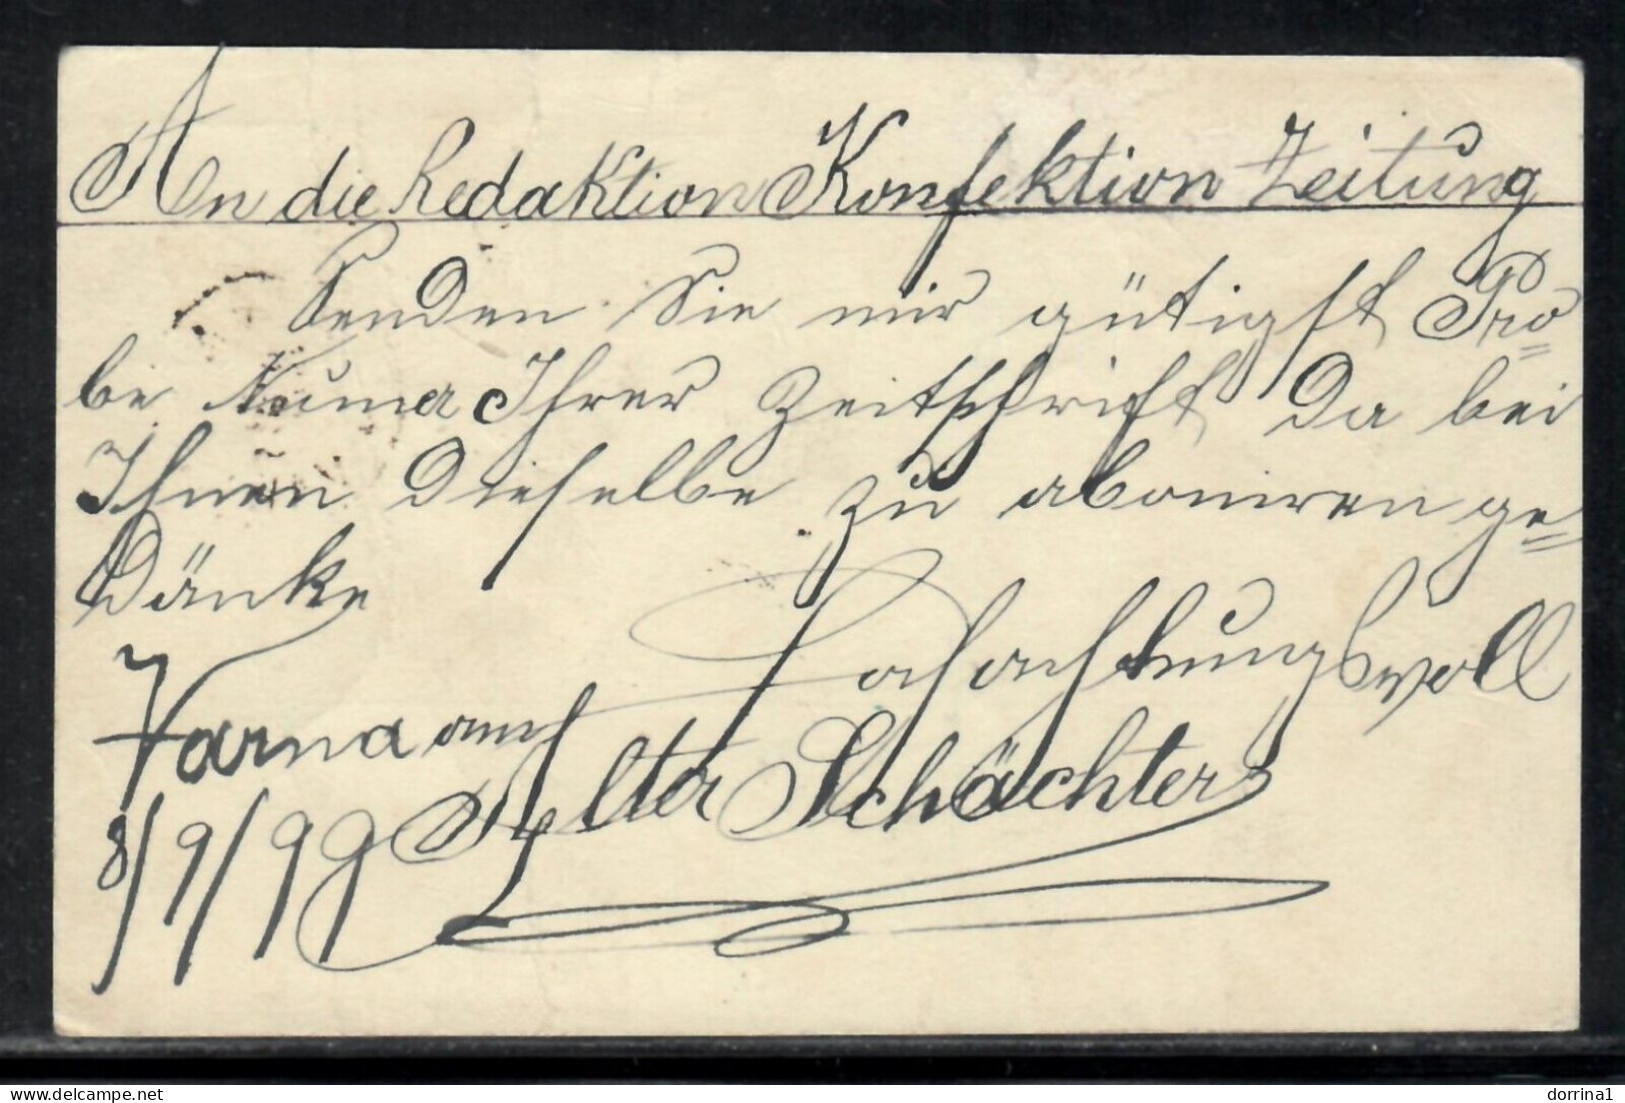 An die Redaktion Konfektion Zeitung
Senden Sie mir gütigst Pro=
be Numer Ihrer Zeitschrift Da bei
Ihnen dieselbe zu aboniren ge=
dänke
Hochachtungsvoll
Varna am
Alter Schächter
8/9/99
dorrina1